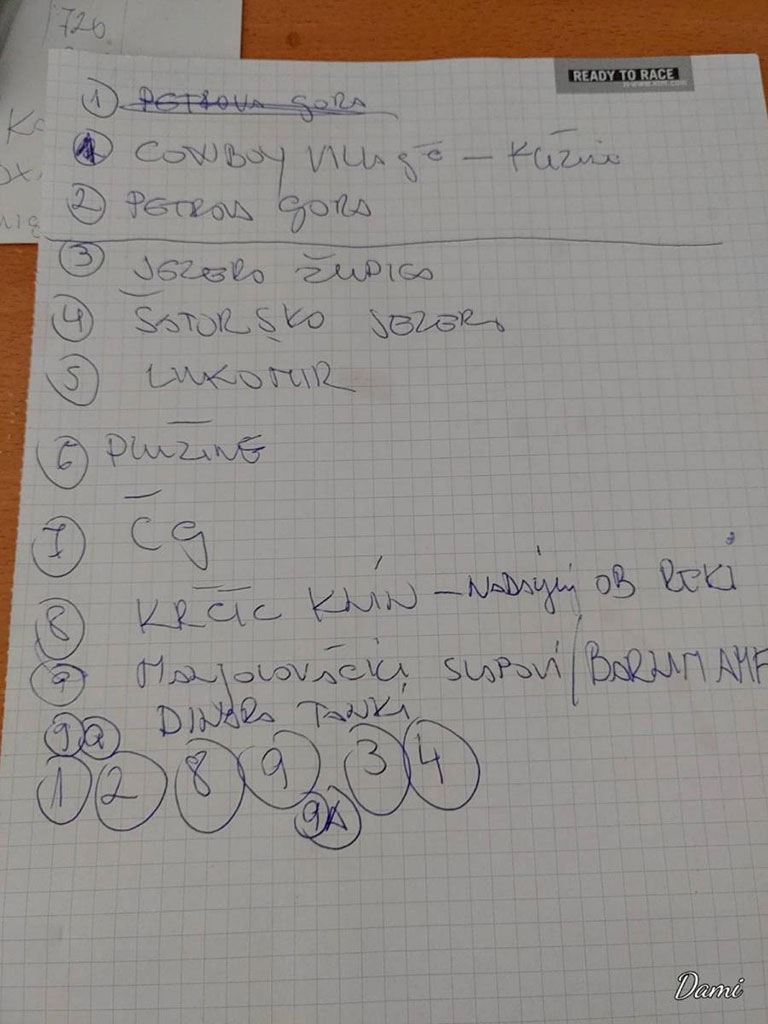 726
READY TO RACE
① PETROVA GORA
1 COWBOY VILLAGE –
② PETROVA GORA
③ JEZERO ŽUPICA
④ ŠATORSKO JEZERO
⑤ LUKOMIR
⑥ PLUŽINE
7 ČG
⑧ KRČIĆ KNIN – OB REKI
⑨ SLAPOVI /
9a DINARA TANKI
1 2 8 9 3 4
9A
Dami